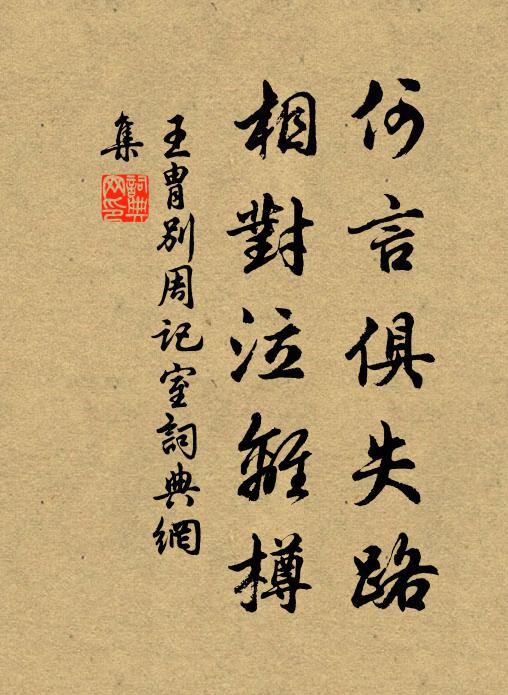 何言俱失路
相對泣離樽
王冑別周記室詞典網
集
詞典
网印